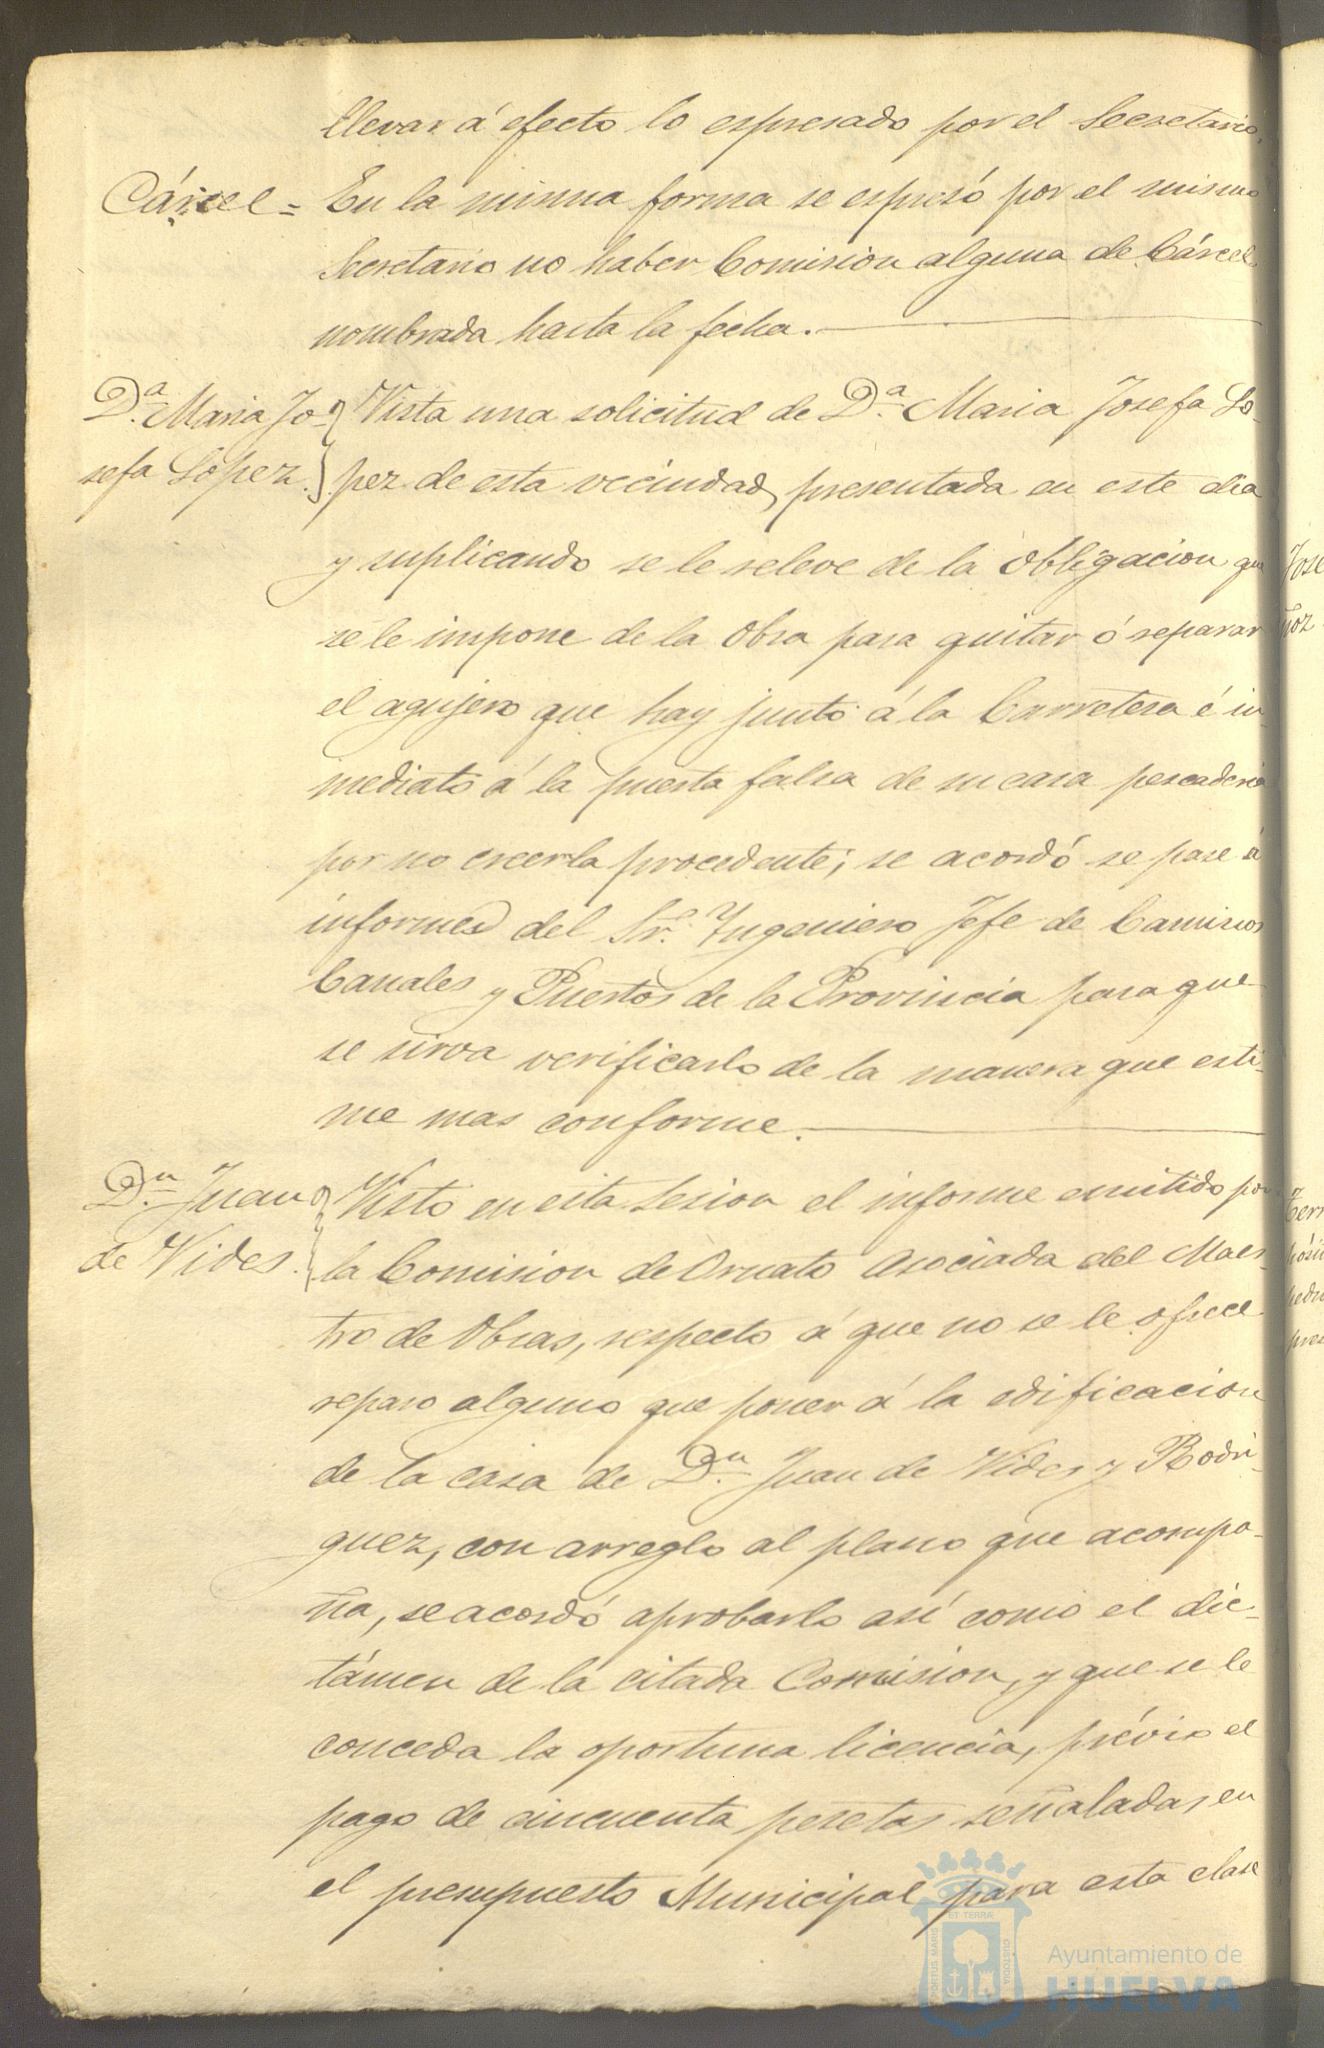 llevar á efecto lo espresado por el Secretario.
Cárcel = En la misma forma se espresó por el mismo
Secretario no haber Comision alguna de Cárcel
nombrada hasta la fecha.
D.ª Maria Jo-
sefa Lopez.
Vista una solicitud de D.ª Maria Josefa Lo-
pez de esta vecindad, presentada en este dia
y suplicando se le releve de la obligacion que
se le impone de la obra para quitar ó reparar
el agujero que hay junto á la Carretera é in-
mediato á la puerta falsa de su casa pescaderia
por no creerla procedente; se acordó se pase á
informe del Sr. Yngeniero Jefe de Caminos
Canales y Puertos de la Provincia para que
se sirva verificarlo de la manera que esti-
me mas conforme.
D.n Juan
de Vides.
Visto en esta Sesion el informe emitido por
la Comision de Ornato asociada del Maes-
tro de Obras, respecto á que no se le ofrece
reparo alguno que poner á la edificacion
de la casa de D.n Juan de Vides y Rodri-
guez, con arreglo al plano que acompa-
ña, se acordó aprobarlo así como el dic-
támen de la citada Comision, y que se le
conceda la oportuna licencia, prévio el
pago de cincuenta pesetas señaladas en
el presupuesto Municipal para esta clase
PORTUS MARIS ET TERRÆ CUSTODIA
Ayuntamiento de
HUELVA